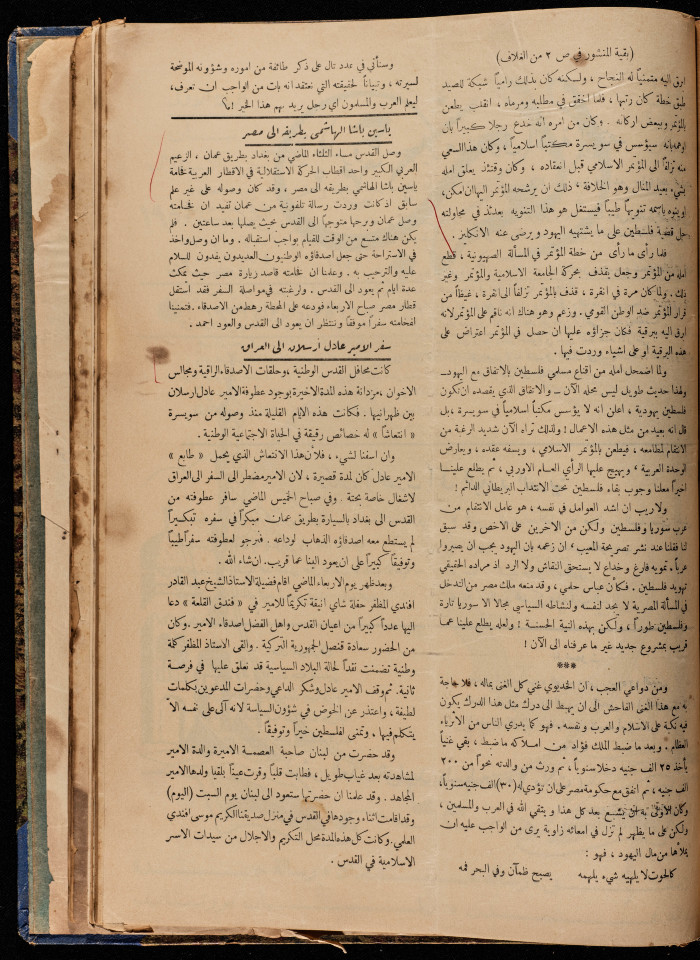 (بقية المنشور في ص ٢ من الغلاف)
ارق اليه متمنياً له النجاح ، ولكنه كان بذلك رامياً شبكة للصيد
طبق خطة كان رتبها ، فلما اخفق في مطلبه ومرماه ، انقلب يطعن
بالمؤتمر وببعض اركانه . وكان من امره انه خدع رجلا كبيراً بان
اوهمه بانه سيؤسس في سويسرة مكتباً اسلامياً ، وكان هذا السعي
منه تزلفاً الى المؤتمر الاسلامي قبل انعقاده ، وكان وقتئذ يعلق امله
بشيء بعيد المنال وهو الخلافة ، ذلك ان يرشحه المؤتمر اليها ان امكن ،
اوينوه باسمه تنويهاً طيباً فيستغل هو هذا التنويه بعدئذ في محاولته
حل قضية فلسطين على ما يشتهيه اليهود ويرضى عنه الانكليز .
فلما رأى ما رأى من خطة المؤتمر في المسألة الصهيونية ، قطع
امله من المؤتمر وجعل يقذف بحركة الجامعة الاسلامية والمؤتمر وغير
ذلك . ولما كان مرة في انقرة ، قذف بالمؤتمر تزلفاً الى انقرة ، غيظاً من
قرار المؤتمر ضد الوطن القومي . وزعم وهو هناك انه ناقم على المؤتمر لانه
ارق اليه ببرقية فكان جزاؤه عليها ان حصل في المؤتمر اعتراض على
هذه البرقية او على اشياء وردت فيها .
ولما اضمحل امله من اقناع مسلمي فلسطين بالاتفاق مع اليهود ــ
ولهذا حديث طويل ليس محله الآن ــ والاتفاق الذي يقصده ان تكون
فلسطين يهودية ، اعلن انه لا يؤسس مكتباً اسلامياً في سويسرة ، بل
قال انه بعيد من مثل هذه الاعمال ! ولذلك تراه الآن شديد الرغبة من
الانتقام لمطامعه ، فيطعن بالمؤتمر الاسلامي ، ويسفه عقده ، ويعارض
الوحدة العربية ، ويهيج عليها الرأي العام الاوربي ، ثم يطلع علينا
اخيراً معلنا وجوب بقاء فلسطين تحت الانتداب البريطاني الدائم !
ولا ريب ان اشد العوامل في نفسه ، هو عامل الانتقام من
عرب سوريا وفلسطين ولكن من الاخرين على الاخص وقد سبق
لنا فقلنا عند نشر تصريحه المعيب ، ان زعمه بان اليهود يجب ان يصيروا
عرباً ، تمويه فارغ وخداع لا يستحق النقاش ولا الرد اذ مراده الحقيقي
تهويد فلسطين . فكأن عباس حلمي ، وقد منعه ملك مصر من التدخل
في المسألة المصرية لا يجد لنفسه ولنشاطه السياسي مجالا الا سوريا تارة
وفلسطين طوراً ، ولكن بهذه النية الحسنة ! ولعله يطلع علينا عما
قريب بمشروع جديد غير ما عرفناه الى الآن !
***
ومن دواعي العجب ، ان الخديوي غني كل الغنى بماله ، فلا حاجة
به مع هذا الغنى الفاحش الى ان يهبط الى درك مثل هذا الدرك يكون
فيه نكبة على الاسلام والعرب ونفسه . فهو كما يدري الناس من الأثرياء
العظام . وبعد ما ضبط الملك فؤاد من املاكه ما ضبط ، بقي غنياً
يأخذ ٢٥ الف جنيه دخلا سنوياً ، ثم ورث من والدته نحواً من ٢٠٠
الف جنيه ، ثم اتفق مع حكومة مصر على ان تؤدي له (٣٠) الف جنيه سنوياً ،
وكان الاولى به ان يشبع بعد كل هذا ويتقي الله في العرب والمسلمين ،
ولكن على ما يظهر لم تزل في امعائه زاوية يرى من الواجب عليه ان
يملأها من مال اليهود ، فهو :
كالحوت لا يلهيه شيء يلهمه يصبح ظمآن وفي البحر فمه
وسنأتي في عدد تال على ذكر طائفة من اموره وشؤونه الموضحة
لسيرته ، وتبياناً لحقيقته التي نعتقد انه بات من الواجب ان تعرف ،
ليعلم العرب والمسلمون اي رجل يريد بهم هذا الخير !
ياسين باشا الهاشمي بطريقه الى مصر
وصل القدس مساء الثلثاء الماضي من بغداد بطريق عمان ، الزعيم
العربي الكبير واحد اقطاب الحركة الاستقلالية في الاقطار العربية فخامة
ياسين باشا الهاشمي بطريقه الى مصر ، وقد كان وصوله على غير علم
سابق اذ كانت وردت رسالة تلفونية من عمان تفيد ان فخامته
وصل عمان وبرحها متوجهاً الى القدس بحيث يصلها بعد ساعتين . فلم
يكن هناك متسع من الوقت للقيام بواجب استقباله . وما ان وصل واخذ
في الاستراحة حتى جعل اصدقاؤه الوطنيون العديدون يفدون للسلام
عليه والترحيب به . وعلمنا ان فخامته قاصد زيارة مصر حيث يمكث
عدة ايام ثم يعود الى القدس . ولرغبته في مواصلة السفر فقد استقل
قطار مصر صباح الاربعاء فودعه على المحطة رهط من الاصدقاء . فتمنينا
لفخامته سفراً موفقاً وننتظر ان يعود الى القدس والعود احمد .
سفر الامير عادل أرسلان الى العراق
كانت محافل القدس الوطنية ، وحلقات الاصدقاء الراقية ومجالس
الاخوان ، مزدانة هذه المدة الاخيرة بوجود عطوفة الامير عادل ارسلان
بين ظهرانيها . فكانت هذه الايام القليلة منذ وصوله من سويسرة
« انتعاشاً » له خصائص رقيقة في الحياة الاجتماعية الوطنية .
وان اسفنا لشيء ، فلأن هذا الانتعاش الذي يحمل « طابع »
الامير عادل كان لمدة قصيرة ، لان الامير مضطر الى السفر الى العراق
لاشغال خاصة بحتة . وفي صباح الخميس الماضي سافر عطوفته من
القدس الى بغداد بالسيارة بطريق عمان مبكراً في سفره تبكيراً
لم يستطع معه اصدقاؤه الذهاب لوداعه . فنرجو لعطوفته سفراً طيباً
وتوفيقاً كبيراً على ان يعود الينا عما قريب . ان شاء الله .
وبعد ظهر يوم الاربعاء الماضي اقام فضيلة الاستاذ الشيخ عبد القادر
افندي المظفر حفلة شاي انيقة تكريماً للامير في « فندق القلعة » دعا
اليها عدداً كبيراً من اعيان القدس واهل الفضل اصدقاء الامير . وكان
من الحضور سعادة قنصل الجمهورية التركية . والقى الاستاذ المظفر كلمة
وطنية تضمنت نقداً لحالة البلاد السياسية قد نعلق عليها في فرصة
ثانية . ثم وقف الامير عادل وشكر الداعي وحضرات المدعوين بكلمات
لطيفة ، واعتذر عن الخوض في شؤون السياسة لانه آلى على نفسه الّا
يتكلم فيها ، وتمنى لفلسطين خيراً وتوفيقاً .
وقد حضرت من لبنان صاحبة العصمة الاميرة والدة الامير
لمشاهدته بعد غياب طويل ، فطابت قلباً وقرت عيناً بلقيا ولدها الامير
المجاهد . وقد علمنا ان حضرتها ستعود الى لبنان يوم السبت (اليوم)
وقد اقامت اثناء وجودها في القدس في منزل صديقنا الكريم موسى افندي
العلمي . وكانت كل هذه المدة محل التكريم والاجلال من سيدات الاسر
الاسلامية في القدس .